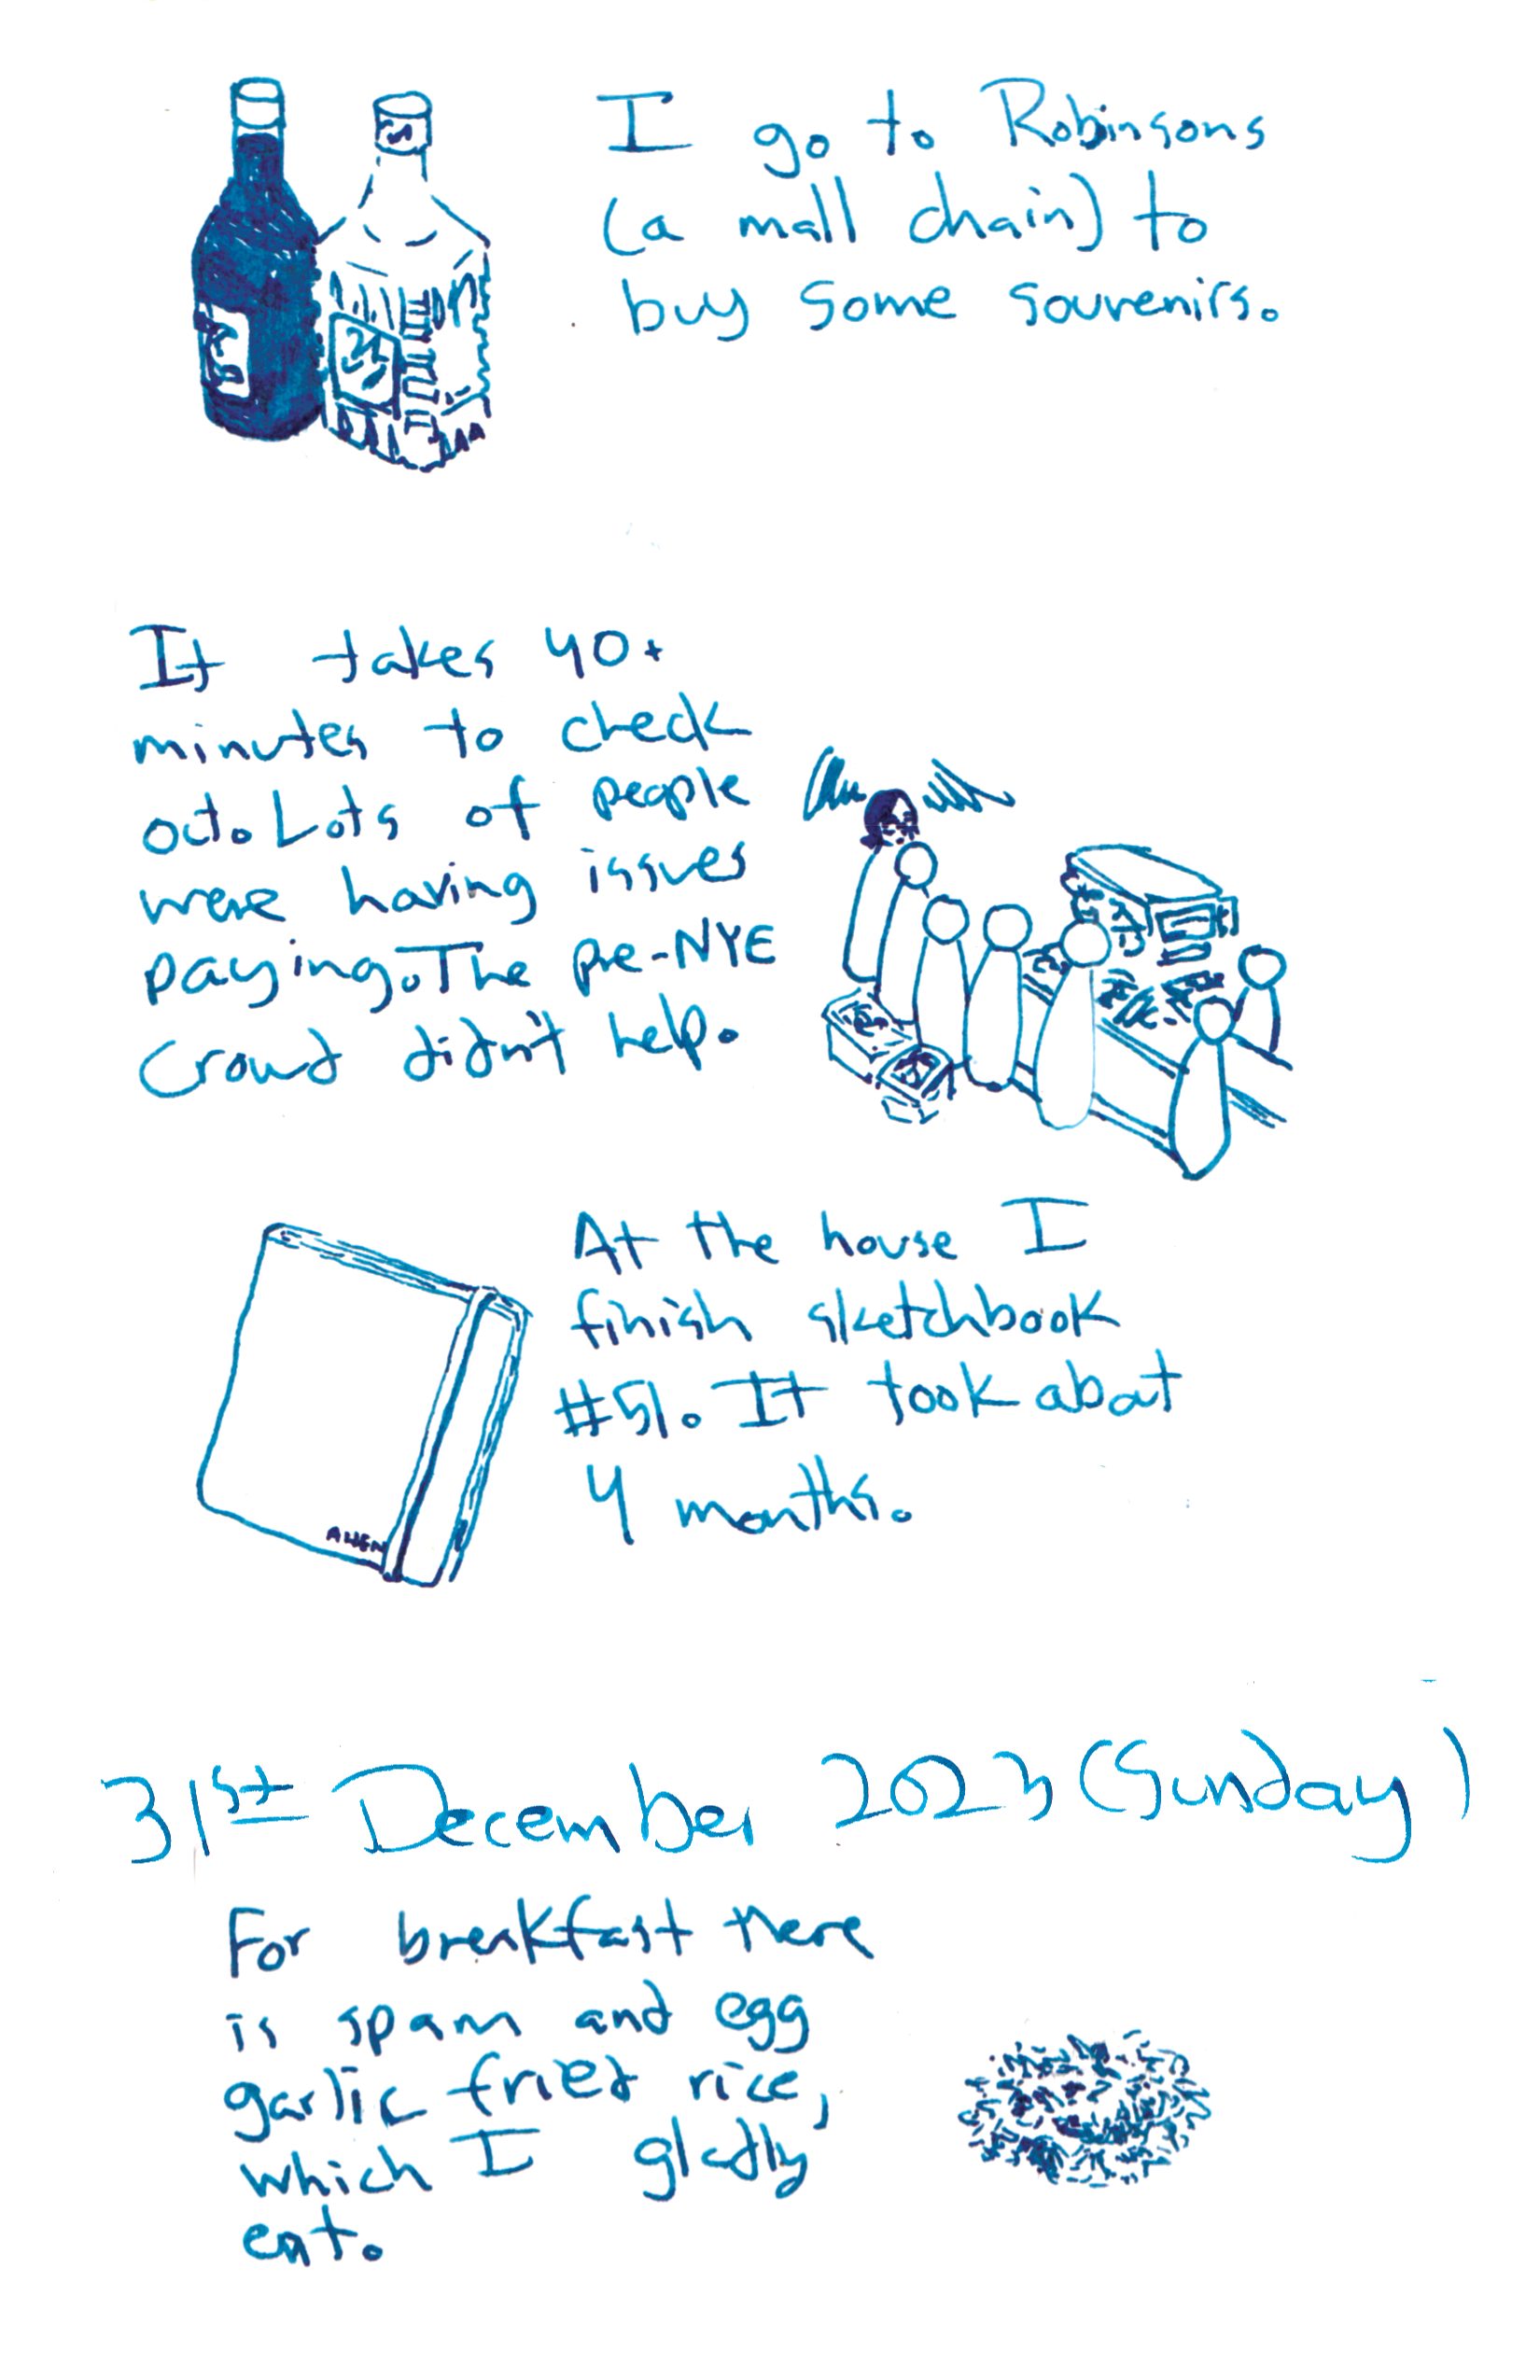 I go to Robinsons
(a mall chain) to
buy some souvenirs.
It takes 40+
minutes to check
out. Lots of people
were having issues
paying. The pre-NYE
crowd didn't help.
At the house I
finish sketchbook
#51. It took about
4 months.
31st December 2023 (Sunday)
For breakfast there
is spam and egg
garlic fried rice,
which I gladly
eat.